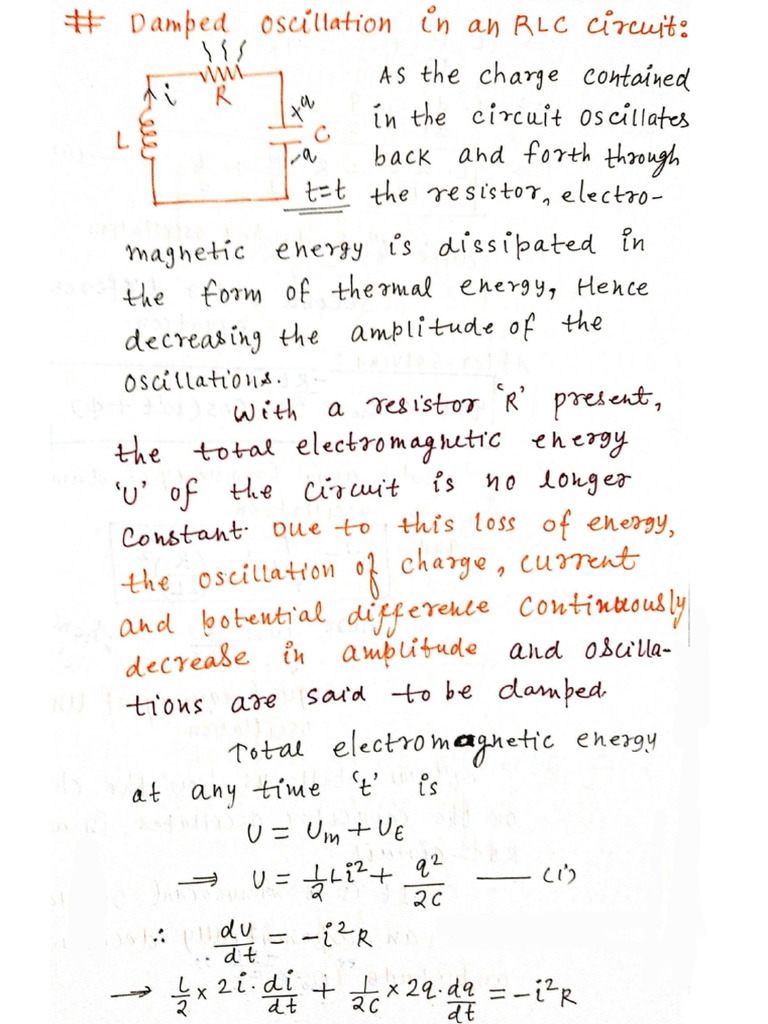 # Damped oscillation in an RLC circuit:
R
i
L
C
+q
-q
t=t
As the charge contained
in the circuit oscillates
back and forth through
the resistor, electro-
magnetic energy is dissipated in
the form of thermal energy, Hence
decreasing the amplitude of the
oscillations.
With a resistor 'R' present,
the total electromagnetic energy
'U' of the circuit is no longer
constant. Due to this loss of energy,
the oscillation of charge, current
and potential difference continuously
decrease in amplitude and oscilla-
tions are said to be damped.
Total electromagnetic energy
at any time 't' is
U = Um + UE
⇒ U = 1/2 Li² + q²/2C —— (1)
∴ du/dt = -i²R
→ L/2 × 2i · di/dt + 1/2C × 2q · dq/dt = -i²R